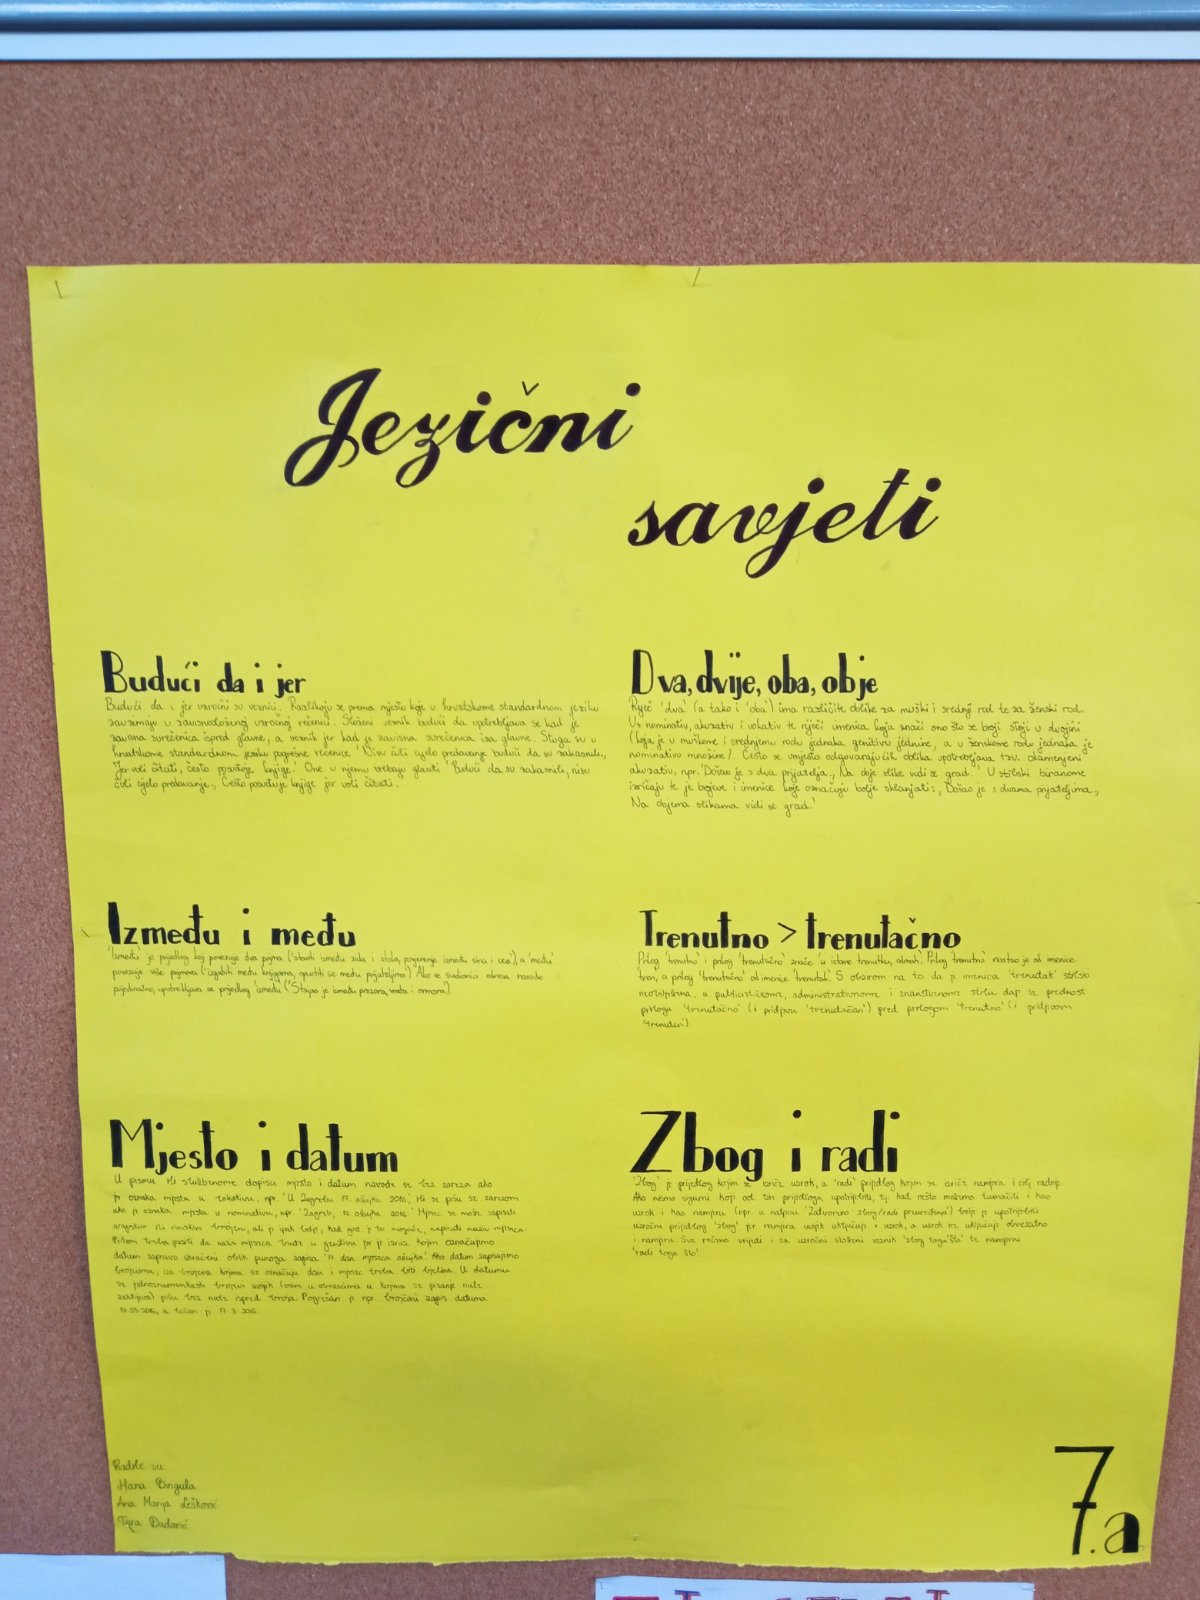 Jezični
savjeti
Budući da i jer
Budući da i jer uzročni su veznici. Razlikuju se prema mjestu koje u hrvatskome standardnom jeziku
zauzimaju u zavisnosloženoj uzročnoj rečenici. Složeni veznik budući da upotrebljava se kad je
zavisna surečenica ispred glavne, a veznik jer kad je zavisna surečenica iza glavne. Stoga su u
hrvatskome standardnom jeziku pogrešne rečenice 'Nisu čuli cijelo predavanje budući da su zakasnili.,
Jer voli čitati, često posuđuje knjige.' One u njemu trebaju glasiti 'Budući da su zakasnili, nisu
čuli cijelo predavanje., Često posuđuje knjige jer voli čitati.'
Dva, dvije, oba, obje
Riječ 'dva' (a tako i 'oba') ima različite oblike za muški i srednji rod te za ženski rod.
Uz nominativ, akuzativ i vokativ te riječi imenica koja znači ono što se broji stoji u dvojini
(koja je u muškome i srednjemu rodu jednaka genitivu jednine, a u ženskome rodu jednaka je
nominativu množine). Često se umjesto odgovarajućih oblika upotrebljava tzv. okamenjeni
akuzativ, npr. 'Došao je s dva prijatelja., Na dvje slike vidi se grad.' U stilski biranome
izričaju te je brojeve i imenice koje označuju bolje sklanjati: ,Došao je s dvama prijateljima.,
Na objema slikama vidi se grad.'
Između i među
'Između' je prijedlog koji povezuje dva pojma ('stavit između zida i stola, povjerenje između sina i oca'), a 'među'
povezuje više pojmova ('izgubiti među knjigama, opustiti se među prijateljima'). Ako se sudionici odnosa navode
pojedinačno, upotrebljava se prijedlog 'između' ('Stajao je između prozora, vrata i ormara').
Trenutno > trenutačno
Prilog 'trenutno' i prilog 'trenutačno' znače 'u istome trenutku, odmah'. Prilog 'trenutno' nastao je od imenice
'tren', a prilog 'trenutačno' od imenice 'trenutak'. S obzirom na to da je imenica 'trenutak' stilski
neobilježena, u publicističkome, administrativnome i znanstvenome stilu daje se prednost
prilogu 'trenutačno' (i pridjevu 'trenutačan') pred prilogom 'trenutno' (i pridjevom
'trenutan').
Mjesto i datum
U pismu ili službenome dopisu mjesto i datum navode se bez zareza ako
je oznaka mjesta u lokativu, npr. 'U Zagrebu 17. ožujka 2016.' ili se pišu sa zarezom
ako je oznaka mjesta u nominativu, npr. 'Zagreb, 17. ožujka 2016.' Mjesec se može zapisati
arapskim ili rimskim brojem, ali je ipak bolje, kad god je to moguće, zapisati naziv mjeseca.
Pritom treba paziti da naziv mjeseca bude u genitivu jer je izraz kojim označujemo
datum zapravo skraćeni oblik punoga zapisa '17. dan mjeseca ožujka'. Ako datum zapisujemo
brojevima, iza brojeva kojima se označuju dan i mjesec treba biti bjelina. U datumu
se jednoznamenkasti brojevi uvijek (osim u obrascima u kojima se pisanje nule
zahtijeva) pišu bez nule ispred broja. Pogrešan je npr. brojčani zapis datuma
17.03.2016., a točan je 17. 3. 2016.
Zbog i radi
'Zbog' je prijedlog kojim se izriče uzrok, a 'radi' prijedlog kojim se izriče namjera i cilj radnje.
Ako nismo sigurni koji od tih prijedloga upotrijebiti, tj. kad nešto možemo tumačiti i kao
uzrok i kao namjeru (npr. u natpisu 'Zatvoreno zbog/radi preuređenja') bolje je upotrijebiti
uzročni prijedlog 'zbog' jer namjera uvijek uključuje i uzrok, a uzrok ne uključuje obvezatno
i namjeru. Sve rečeno vrijedi i za uzročni složeni veznik 'zbog toga što' te namjerni
'radi toga što'.
Radile su:
Hana Bingula
Ana Marija Lešković
Tara Dudarić
7.a